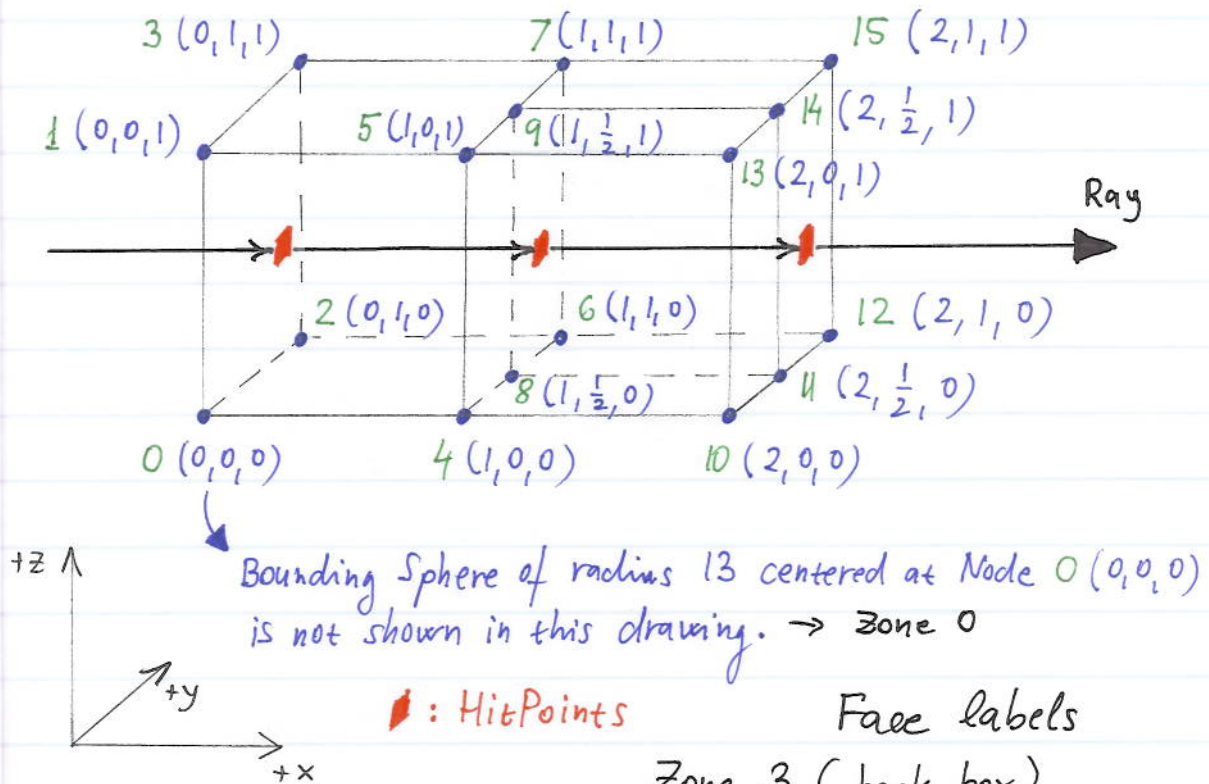 3 (0,1,1)
7 (1,1,1)
15 (2,1,1)
1 (0,0,1)
5 (1,0,1)
9 (1,1/2,1)
14 (2,1/2,1)
13 (2,0,1)
Ray
2 (0,1,0)
6 (1,1,0)
12 (2,1,0)
8 (1,1/2,0)
11 (2,1/2,0)
0 (0,0,0)
4 (1,0,0)
10 (2,0,0)
+z
Bounding Sphere of radius 13 centered at Node 0 (0,0,0)
is not shown in this drawing. → Zone 0
+y
: HitPoints
Face labels
+x
Zone 3 (back box)